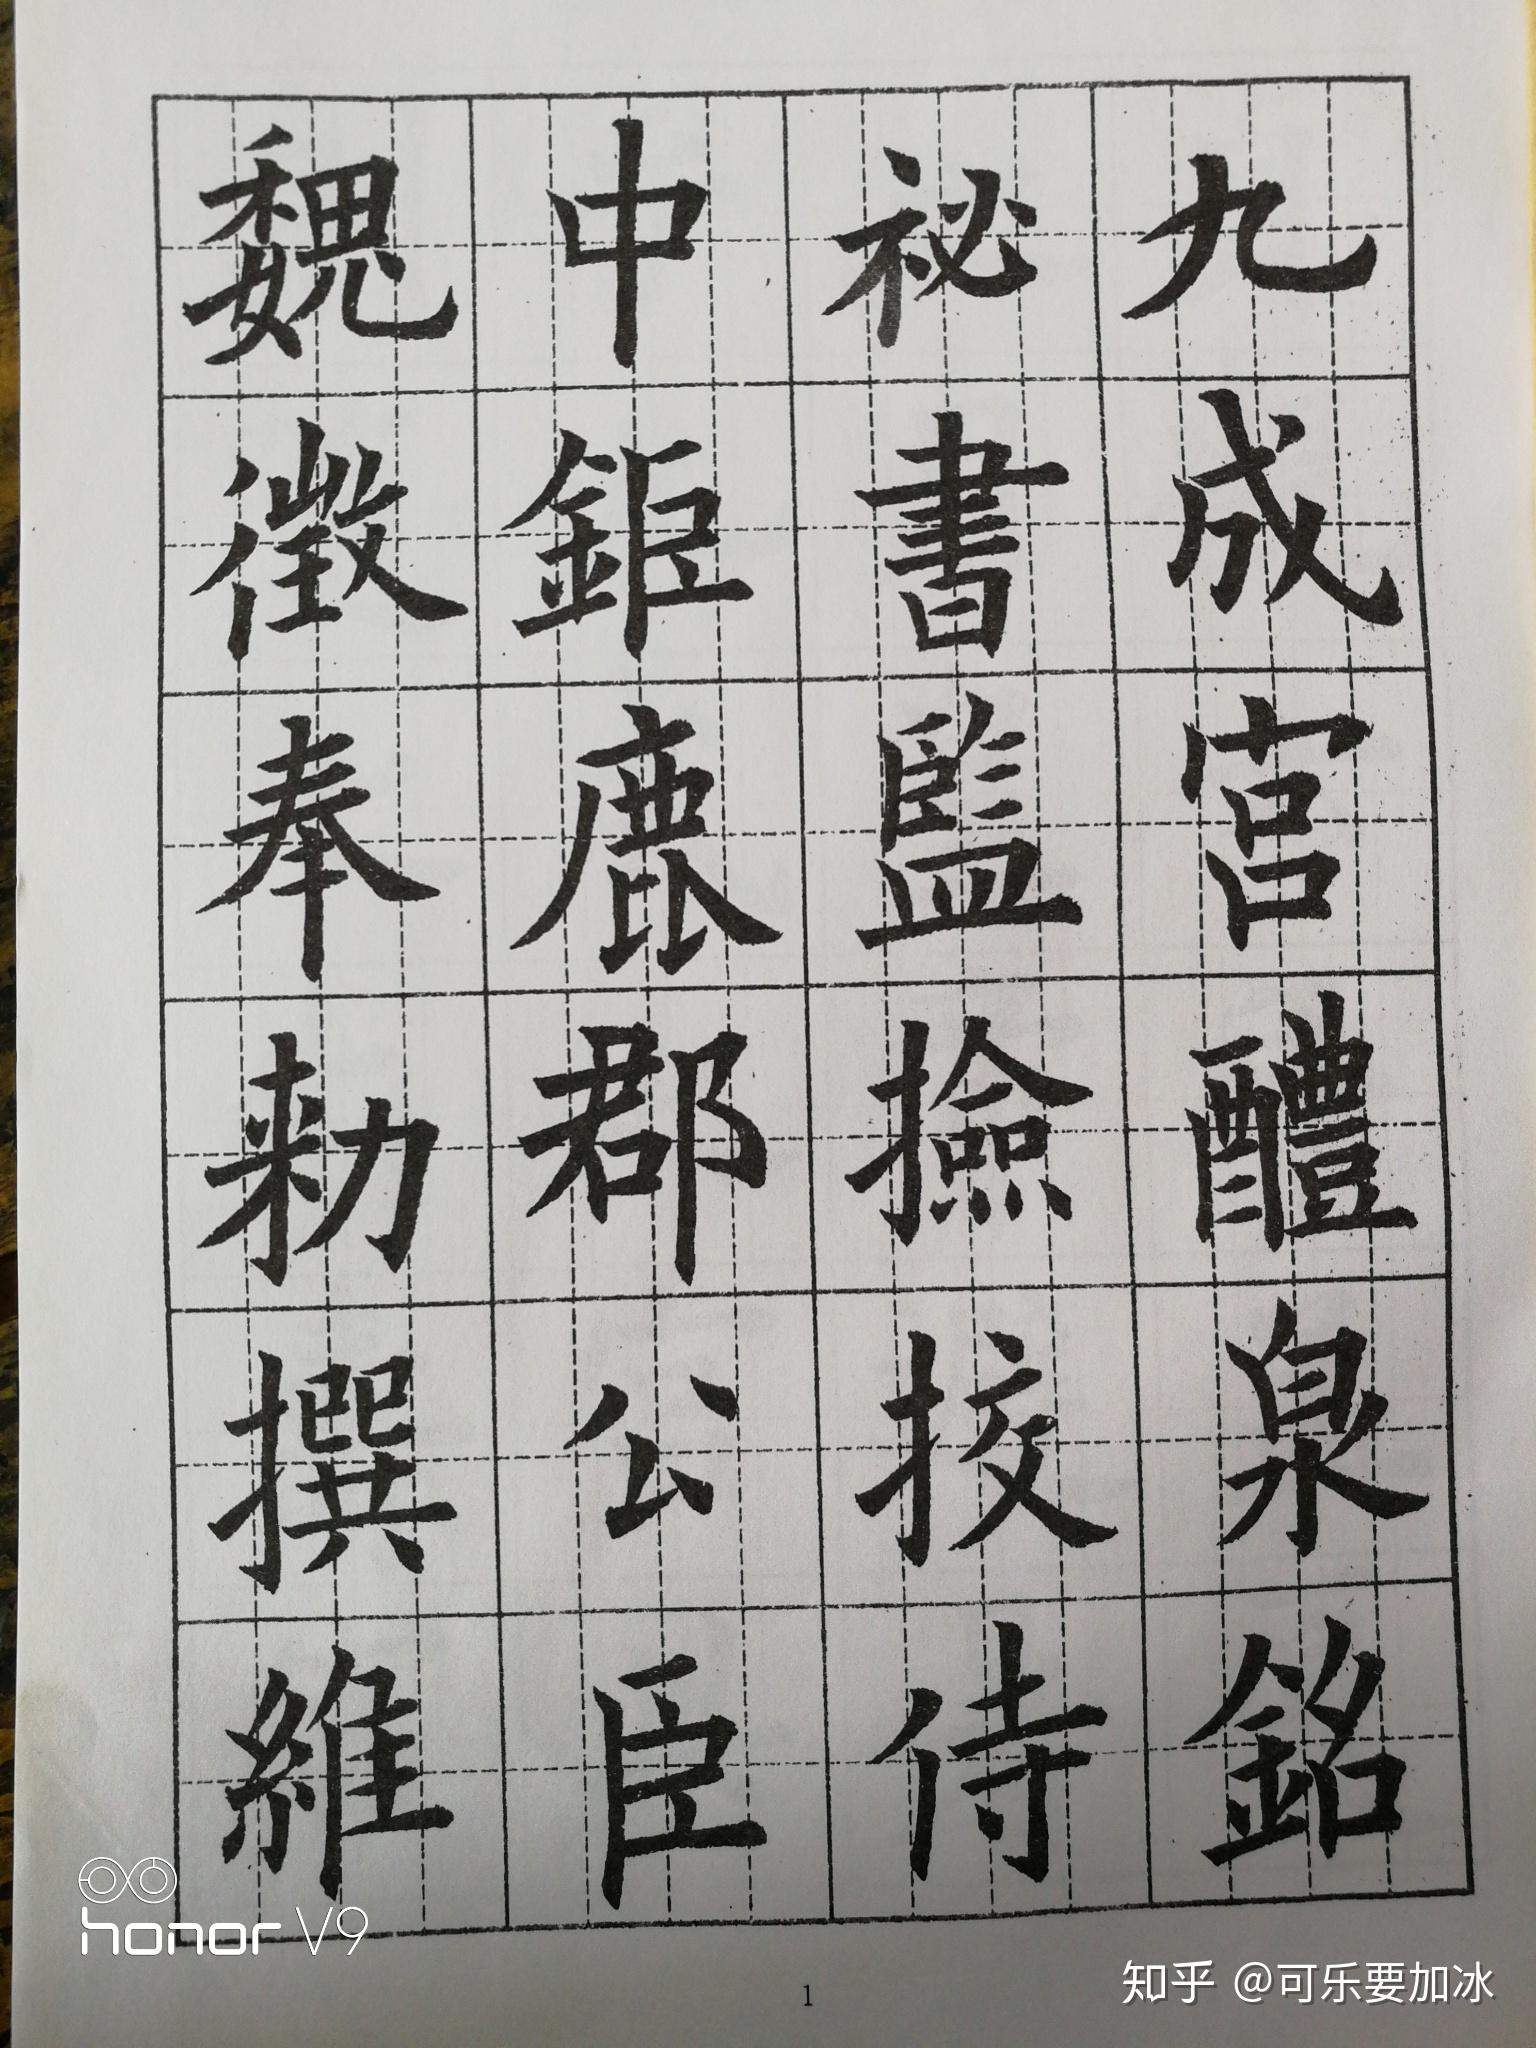 九成宮醴泉銘
祕書監撿挍侍
中鉅鹿郡公臣
魏徵奉勑撰維
1
honor V9
知乎 @可乐要加冰